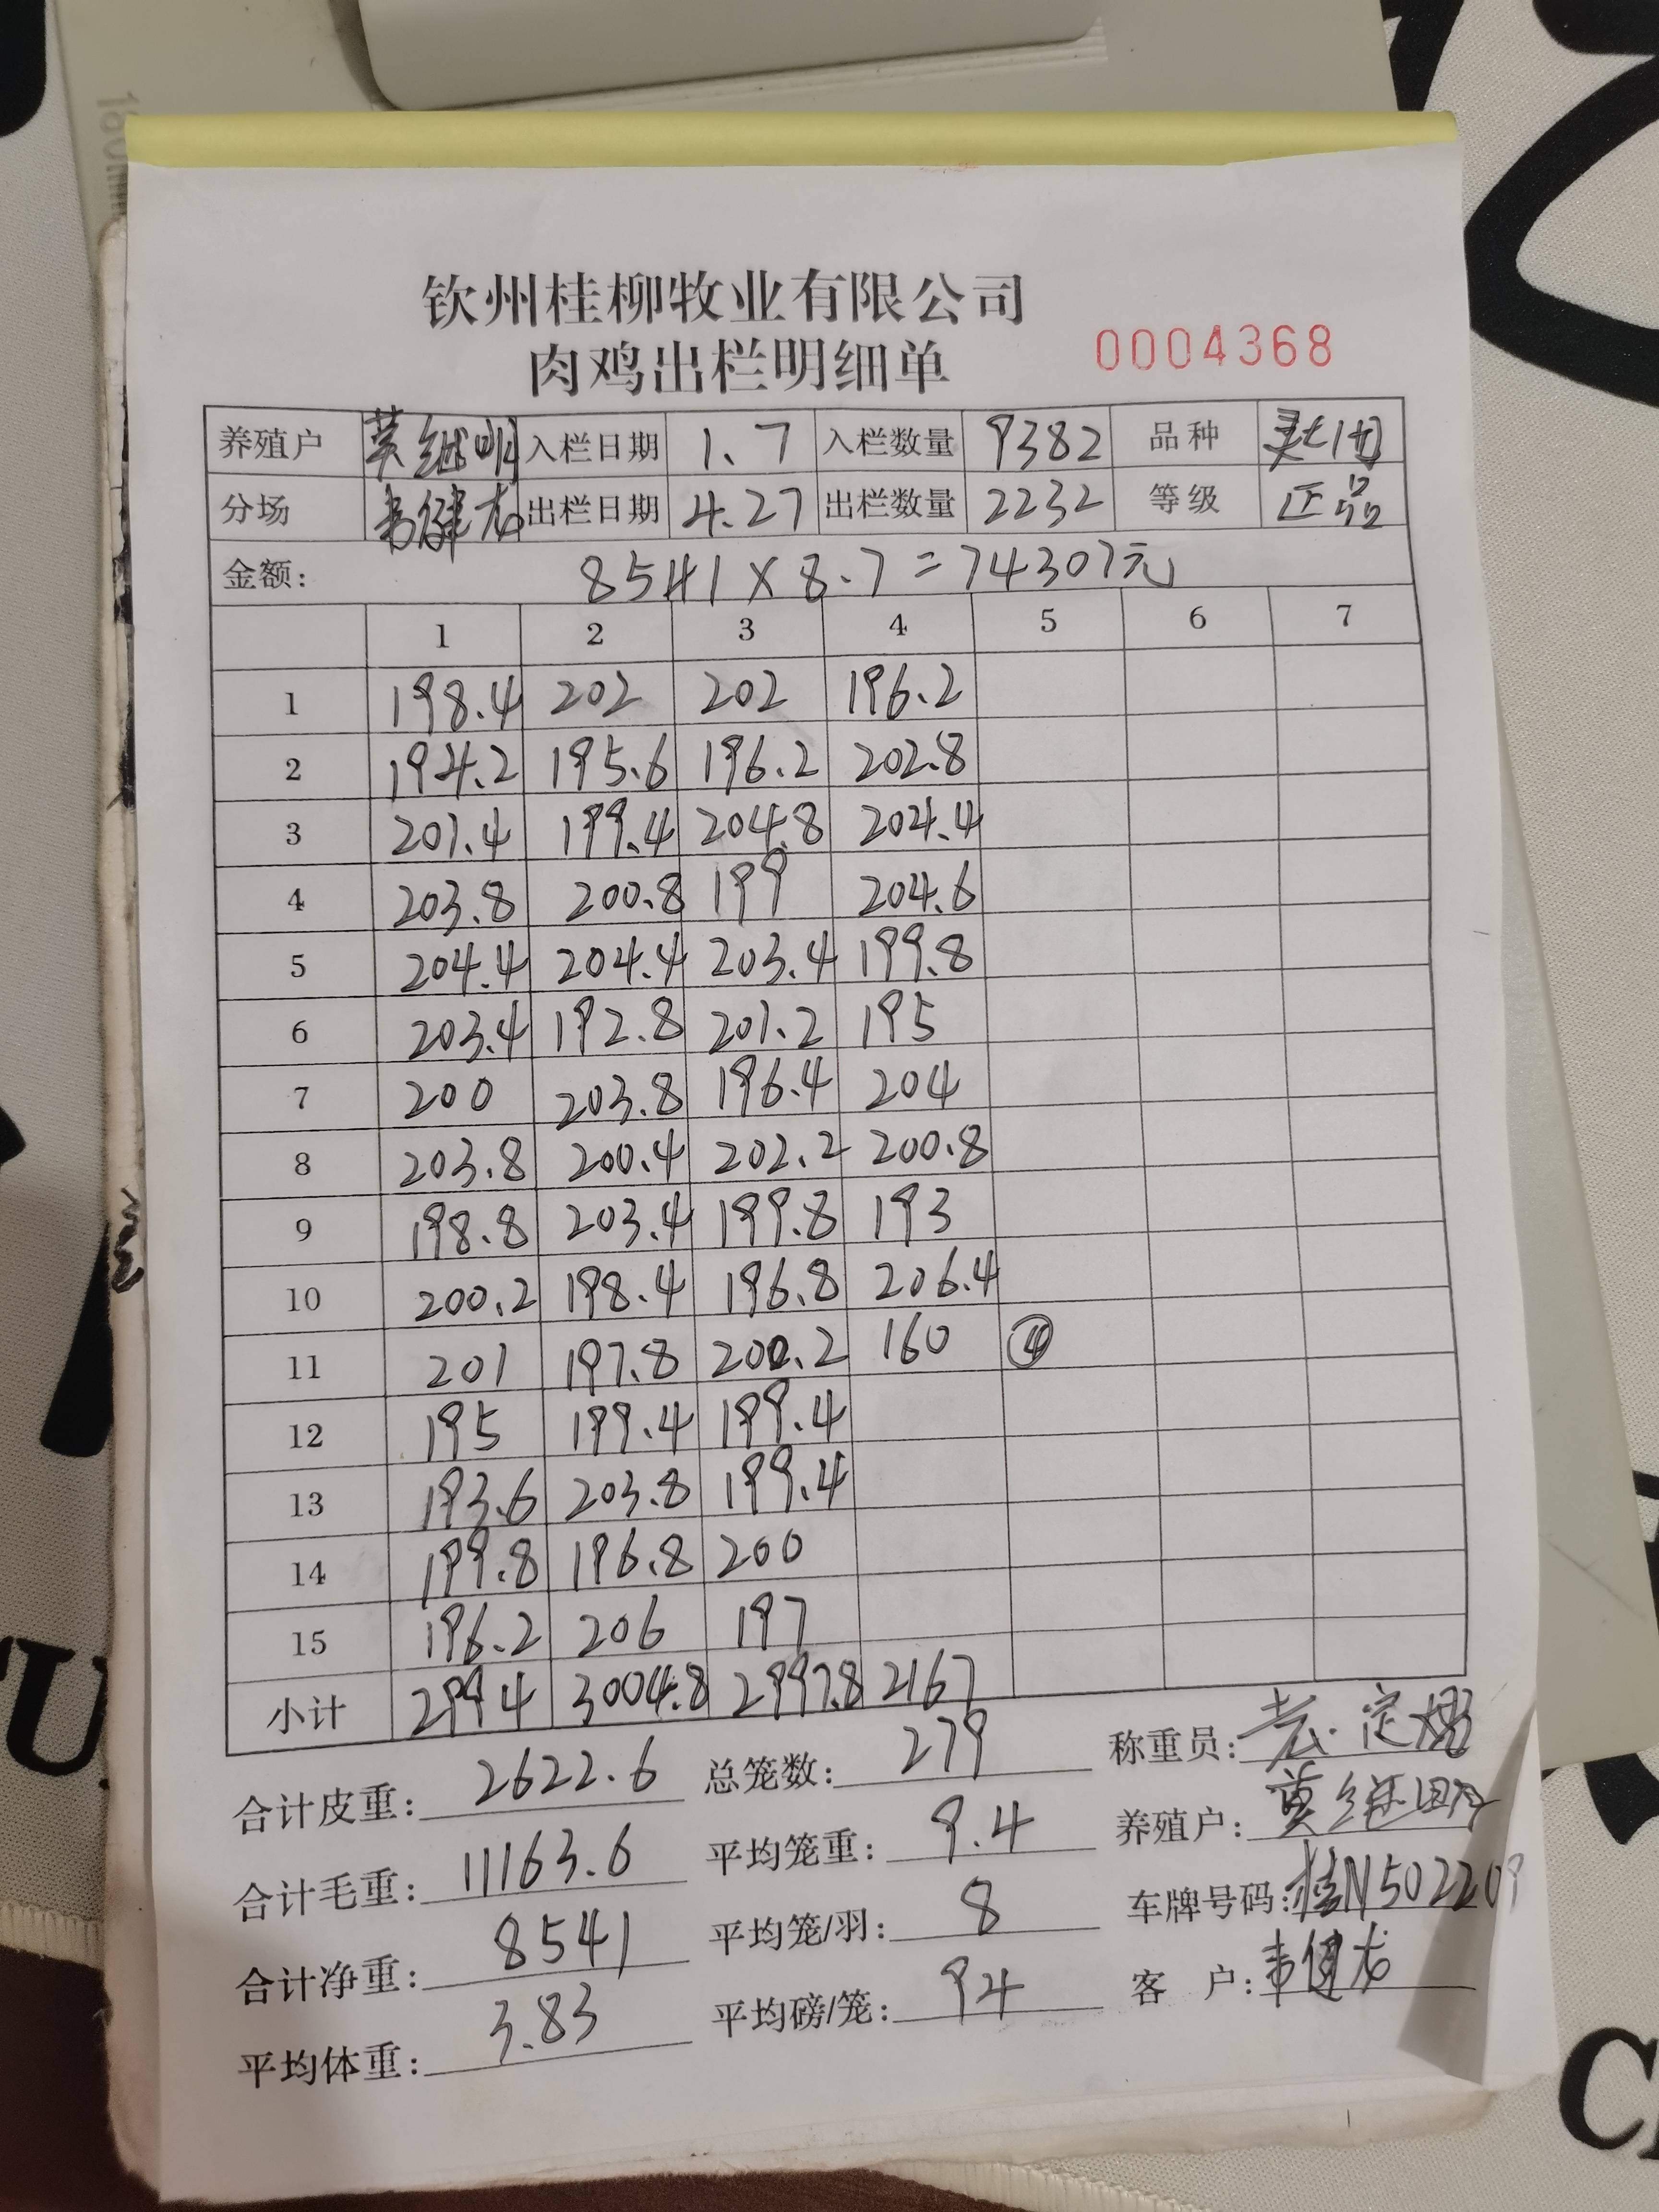 180mm
钦州桂柳牧业有限公司
肉鸡出栏明细单 0004368
养殖户 莫继明 入栏日期 1.7 入栏数量 9382 品种
分场 韦健龙 出栏日期 4.27 出栏数量 2232 等级 正品
金额: 8541×8.7=74307元
1 2 3 4 5 6 7
1 198.4 202 202 196.2
2 194.2 195.6 196.2 202.8
3 201.4 199.4 204.8 204.4
4 203.8 200.8 199 204.6
5 204.4 204.4 203.4 199.8
6 203.4 192.8 201.2 195
7 200 203.8 196.4 204
8 203.8 200.4 202.2 200.8
9 198.8 203.4 199.8 193
10 200.2 198.4 196.8 206.4
11 201 197.8 200.2 160 ④
12 195 199.4 199.4
13 193.6 203.8 199.4
14 199.8 196.8 200
15 196.2 206 197
小计 2994 3004.8 2997.8 2167
合计皮重: 2622.6 总笼数: 279 称重员:
合计毛重: 11163.6 平均笼重: 9.4 养殖户: 莫继明
合计净重: 8541 平均笼/羽: 8 车牌号码: 桂N502209
平均体重: 3.83 平均磅/笼: 94 客 户: 韦健龙